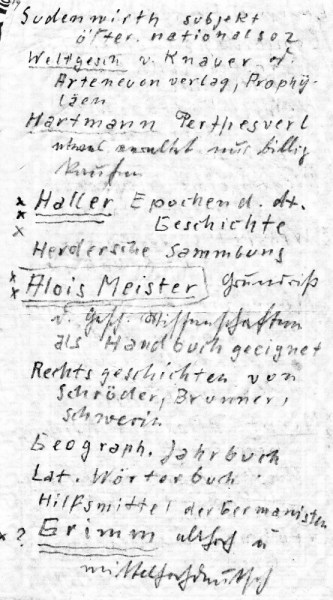 Sudenwirth subjekt
öster. nationalsoz
Weltgesch v. Knauer od.
Verlag, Prophy-
läen
Hartmann Perthesverl
nur billig
kaufen
x Haller Epochen d. dt.
x Geschichte
Herdersche Sammlung
x Alois Meister Grundriß
d. Gesch. Wissenschaften
als Handbuch geeignet
Rechtsgeschichten von
Schröder, Brunner,
Schwerin
Geograph. Jahrbuch
Lat. Wörterbuch
Hilfsmittel der Germanisten
x ? Grimm althoch u
mittelhochdeutsch